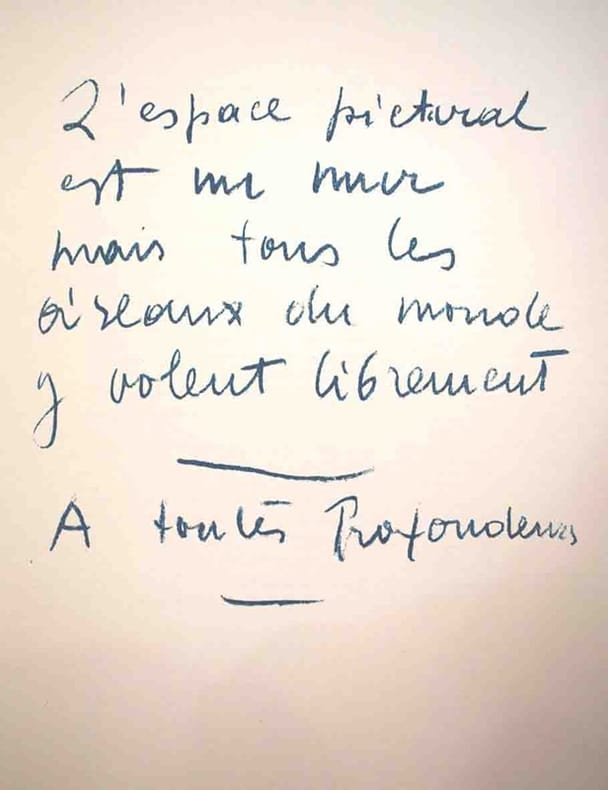 L'espace pictural
est un mur
mais tous les
oiseaux du monde
y volent librement
A toutes Profondeurs